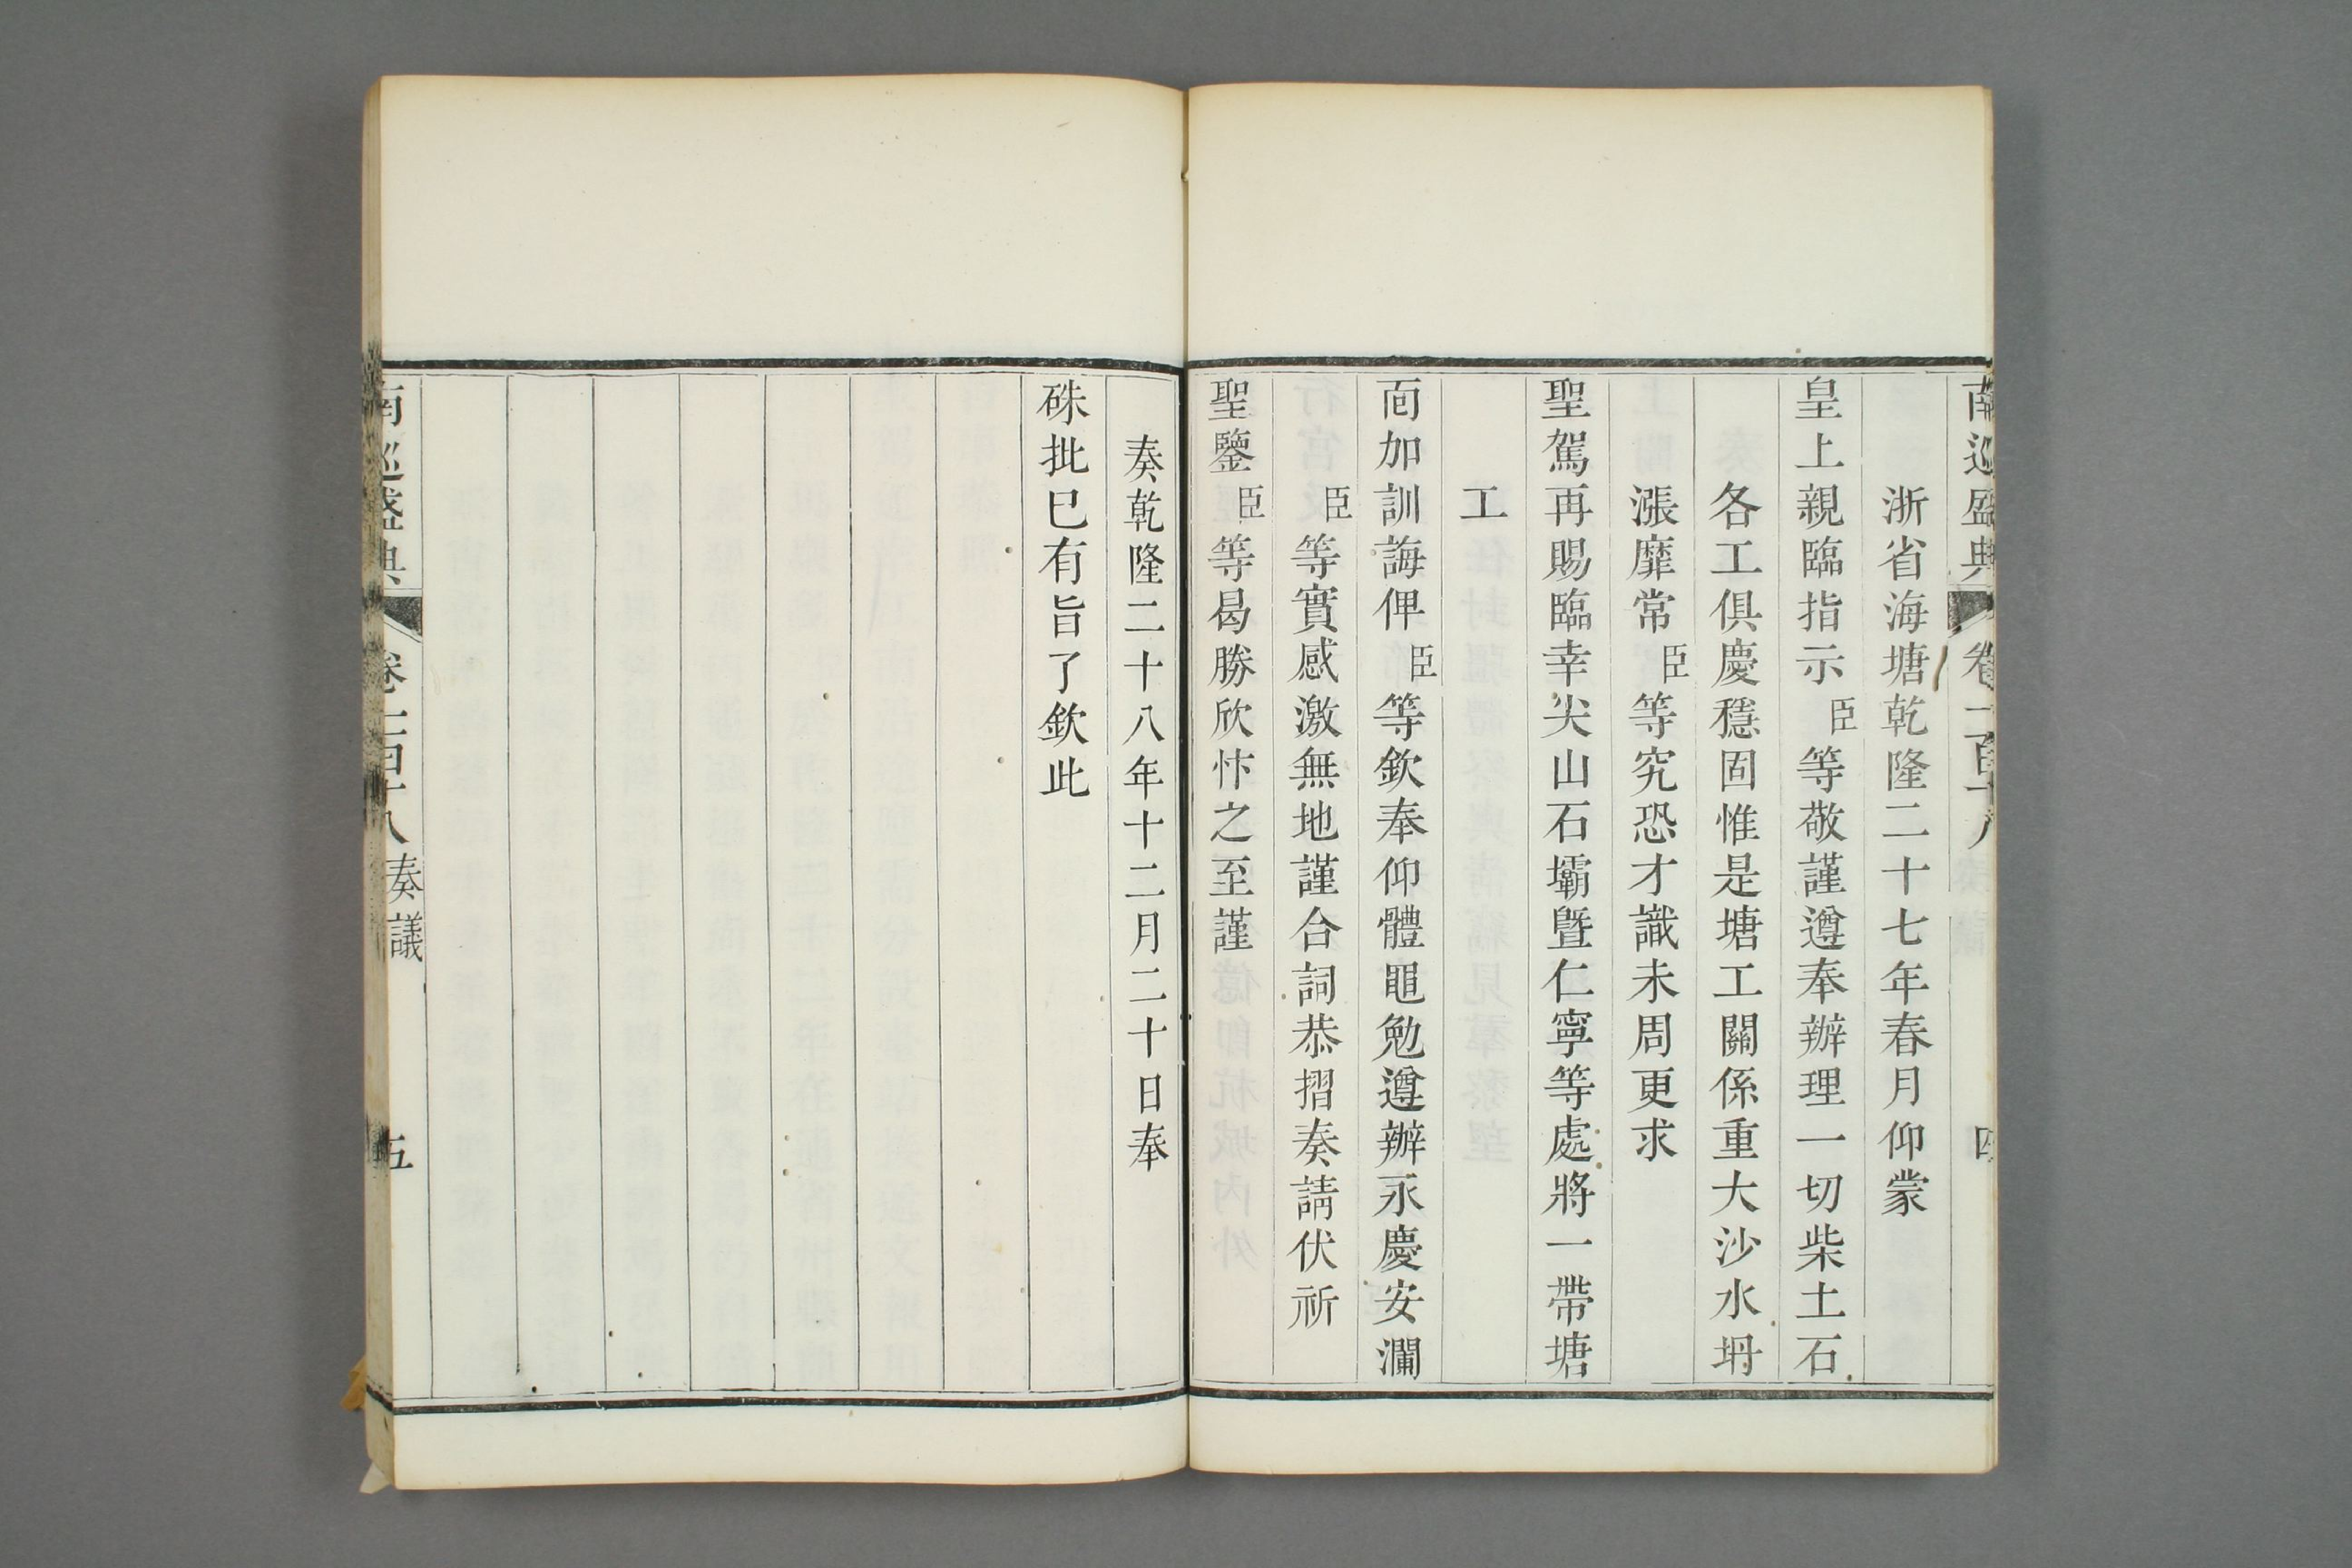 南巡盛典 卷一百十八 奏議 四
浙省海塘乾隆二十七年春月仰蒙
皇上親臨指示臣等敬謹遵奉辦理一切柴土石
各工俱慶穩固惟是塘工關係重大沙水坍
漲靡常臣等究恐才識未周更求
聖駕再賜臨幸尖山石壩暨仁寧等處將一帶塘
工
面加訓誨俾臣等欽奉仰體黽勉遵辦永慶安瀾
臣等實感激無地謹合詞恭摺奏請伏祈
聖鑒臣等曷勝欣忭之至謹
奏乾隆二十八年十二月二十日奉
硃批已有旨了欽此
南巡盛典 卷一百十八 奏議 五